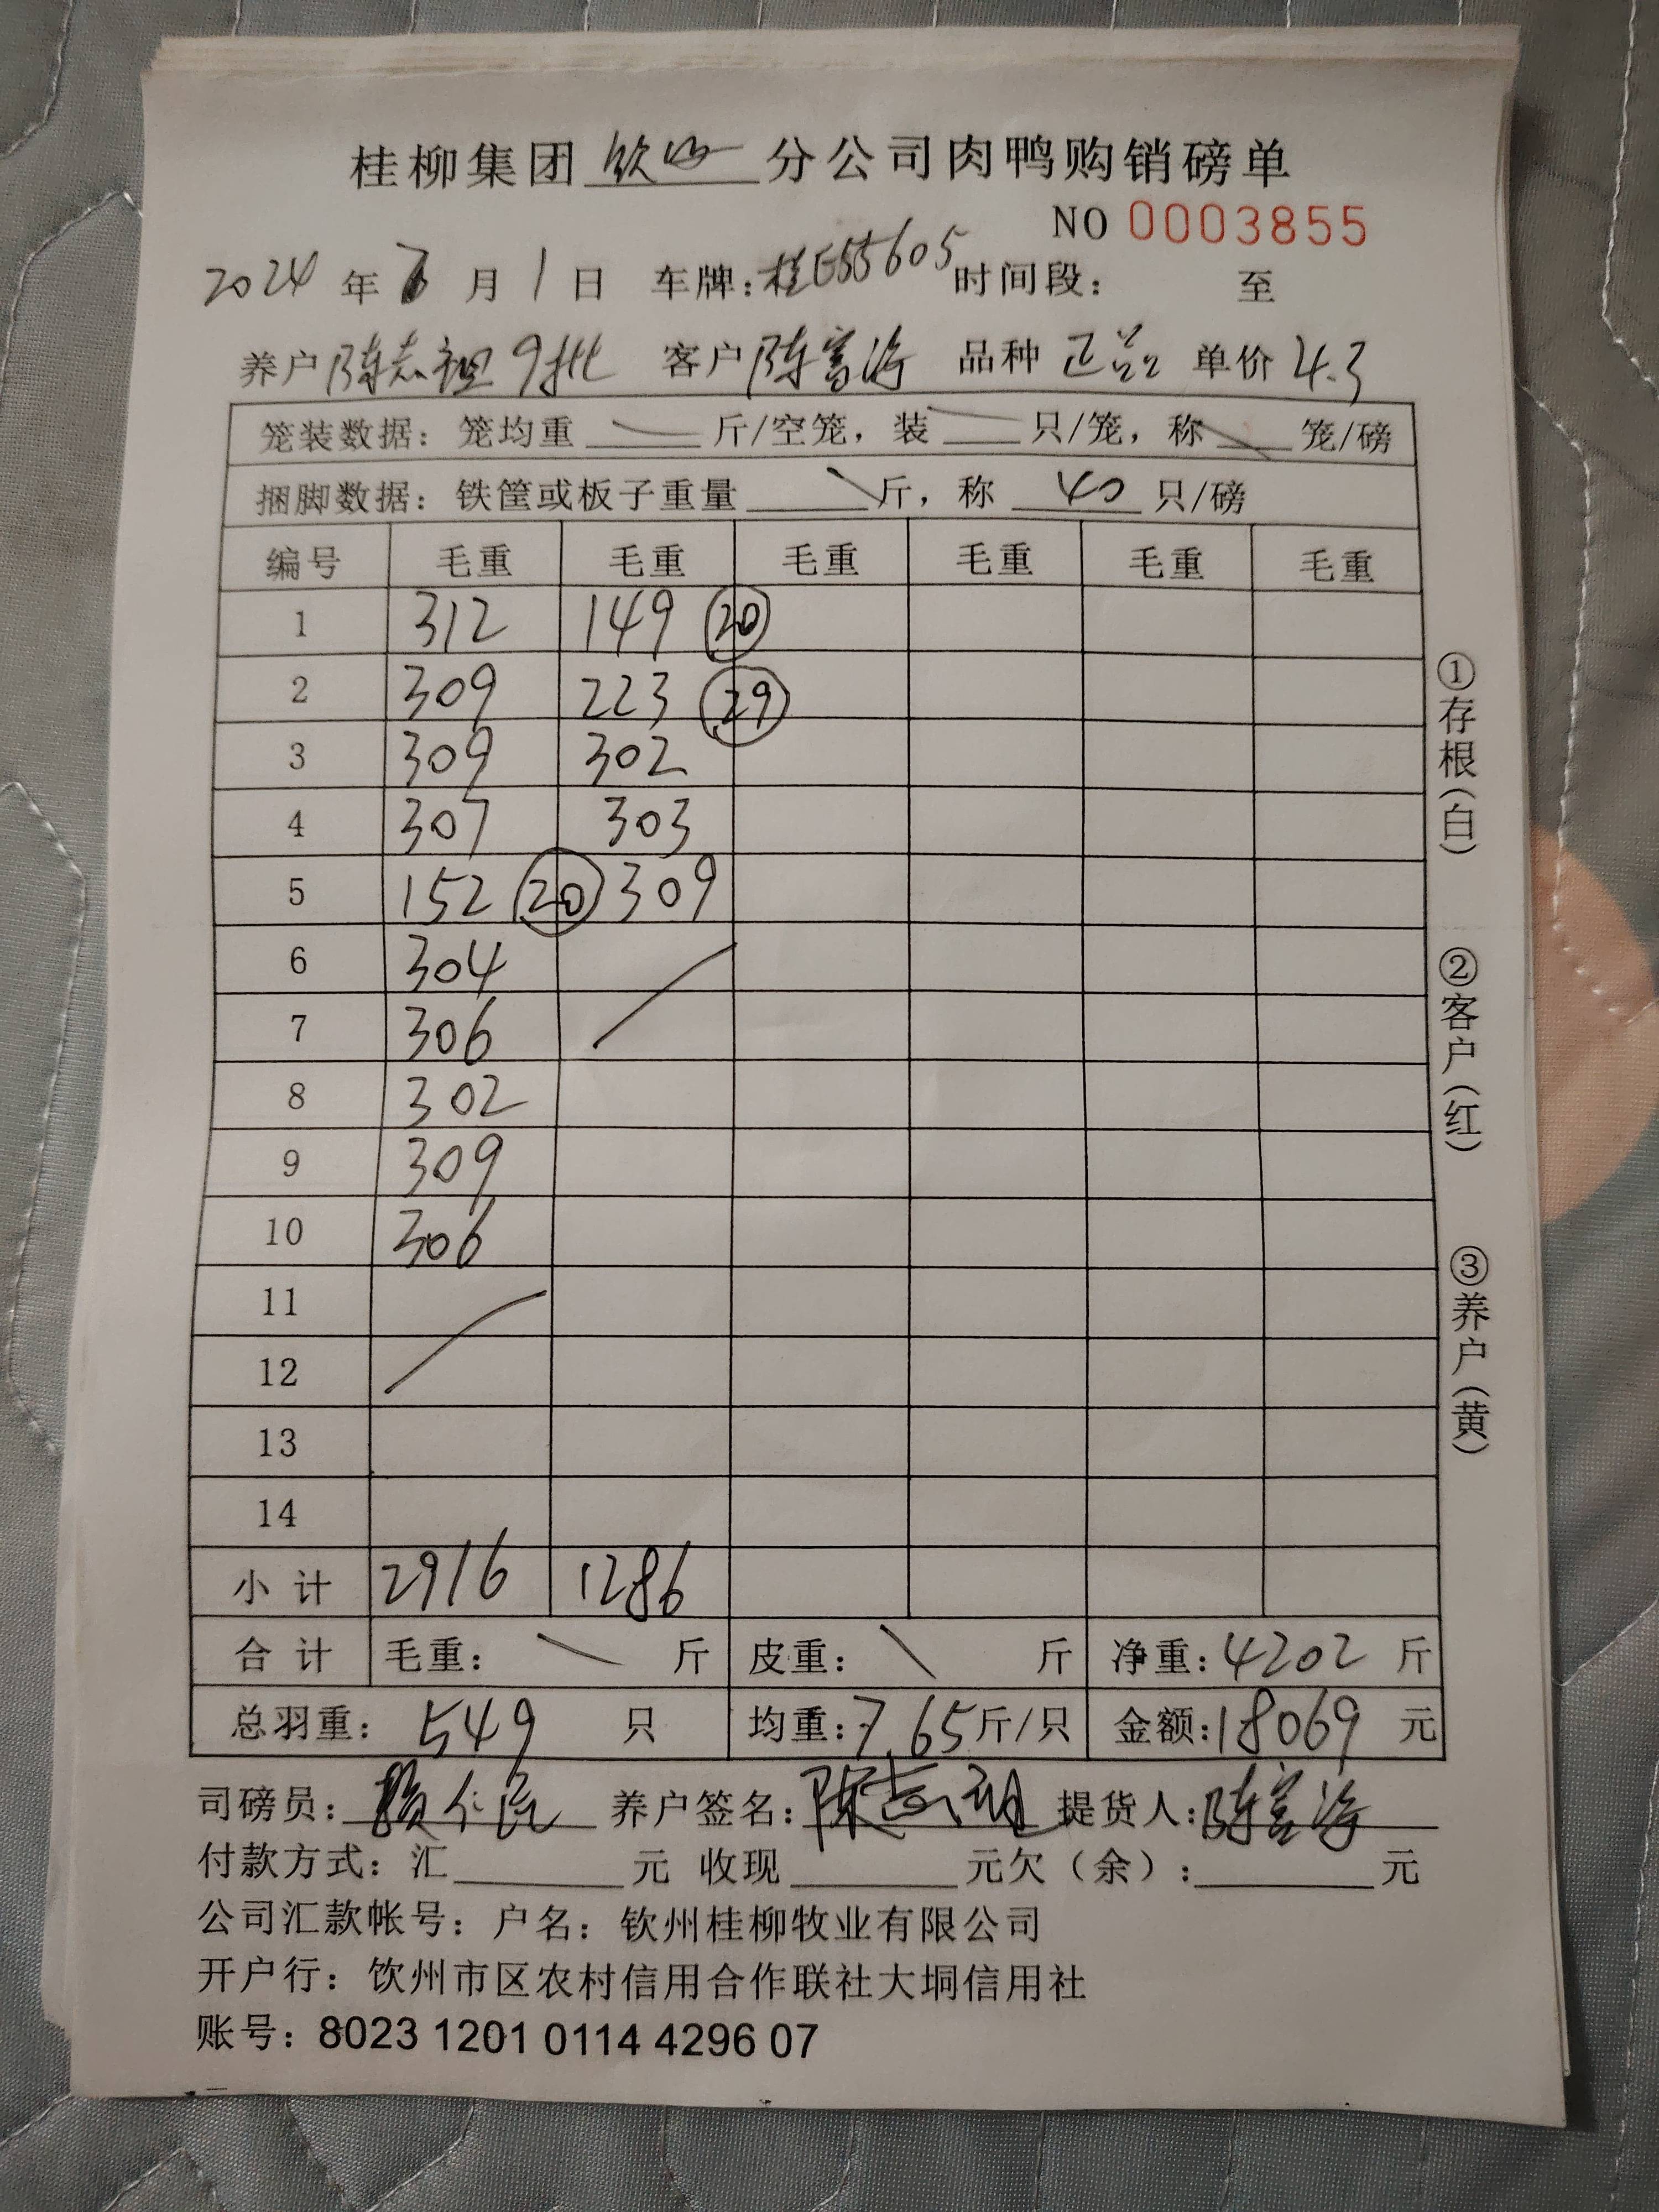 桂柳集团 钦州 分公司肉鸭购销磅单
NO 0003855
2024 年 月 1 日 车牌:桂E55605 时间段: 至
养户 陈志祖 9批 客户 陈富海 品种 正品 单价 4.3
笼装数据: 笼均重 斤/空笼, 装 只/笼, 称 笼/磅
捆脚数据: 铁筐或板子重量 斤, 称 40 只/磅
编号 毛重 毛重 毛重 毛重 毛重 毛重
1 312 149 ⑳
2 309 223 ㉙
3 309 302
4 307 303
5 152 ⑳ 309
6 304
7 306
8 302
9 309
10 306
11
12
13
14
小计 2916 1286
合计 毛重: 斤 皮重: 斤 净重: 4202 斤
总羽重: 549 只 均重: 7.65 斤/只 金额: 18069 元
司磅员: 养户签名: 陈志祖 提货人: 陈富海
付款方式: 汇 元 收现 元欠(余): 元
公司汇款帐号: 户名: 钦州桂柳牧业有限公司
开户行: 钦州市区农村信用合作联社大垌信用社
账号: 8023 1201 0114 4296 07
①存根(白)
②客户(红)
③养户(黄)